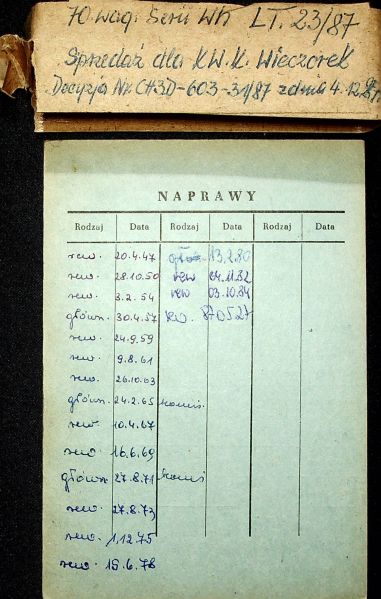 70 wag. Serii Wh LT. 23/87
Sprzedaż dla KW.K. Wieczorek
Decyzja Nr CH3D-603-31/87 z dnia 4.12.87
NAPRAWY
Rodzaj Data Rodzaj Data Rodzaj Data
rew. 20.4.47 główn 13.2.80
rew. 28.10.50 rew 24.11.82
rew. 3.2.54 rew 03.10.84
główn. 30.4.57 rew. 870527
rew. 24.9.59
rew. 9.8.61
rew. 26.10.63
główn. 24.2.65
rew. 10.4.67
rew. 16.6.69
główn. 27.8.71
rew. 27.8.73
rew. 1.12.75
rew. 15.6.78